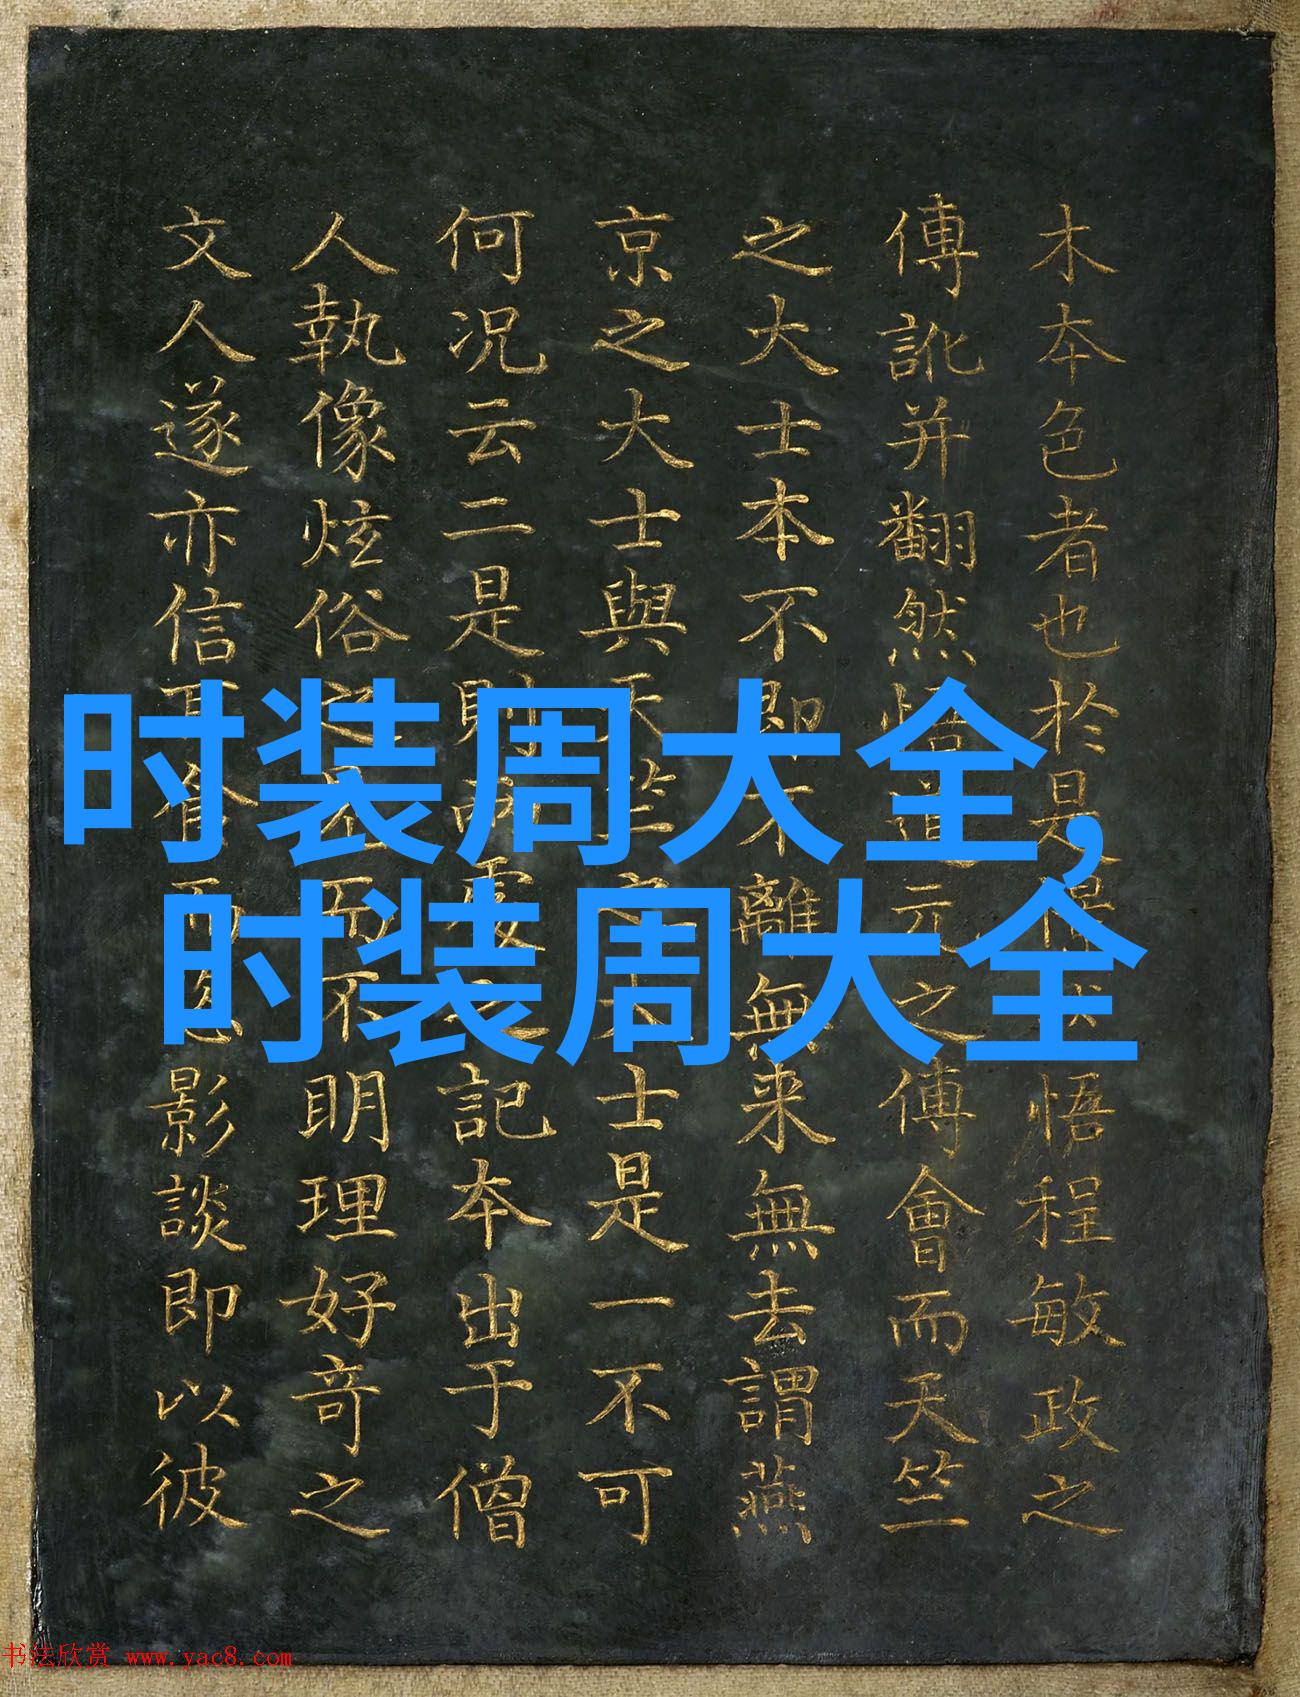 木本色者也於是
悟程敏政之
傳訛并翻然悟道元之傅會而天竺
之大士本不即不離無来無去謂燕
京之大士與天竺之大士是一不可
何况云二是則兩處之記本出于僧
人執像炫俗
不明理好奇之
文人遂亦信耳
影談即以彼
时装周大全,
时装周大全
书法欣赏 www.yac8.com